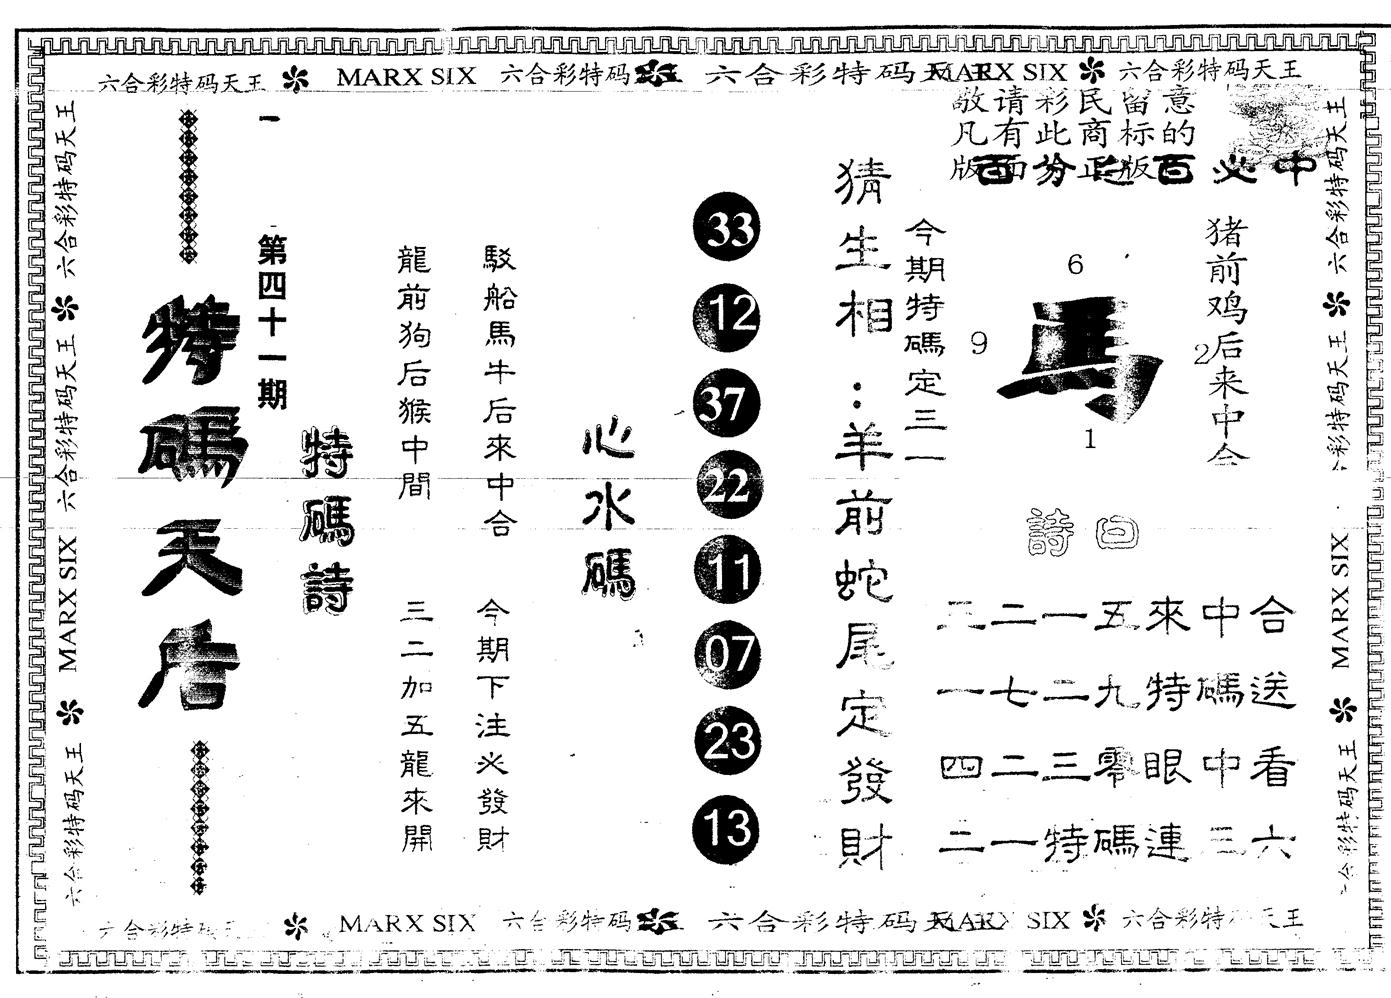 六合彩特码天王 MARX SIX 六合彩特码天王 六合彩特码天王 MARX SIX 六合彩特码天王
六合彩特码天王
六合彩特码天王
MARX SIX
六合彩特码天王
特碼天后
第四十一期
特碼詩
龍前狗后猴中間
三二加五龍來開
駁船馬牛后來中合
今期下注必發財
心水碼
33
12
37
22
11
07
23
13
猜生相:羊前蛇尾定發財
敬请彩民留意
凡有此商标的
版面为正版
百分之百必中
今期特碼定三一
6
9
馬
2
1
猪前鸡后来中合
詩曰
三二一五來中合
一七二九特碼送
四二三零眼中看
二一特碼連三六
六合彩特码天王
六合彩特码天王
MARX SIX
六合彩特码天王
六合彩特码天王 MARX SIX 六合彩特码天王 六合彩特码天王 MARX SIX 六合彩特码天王